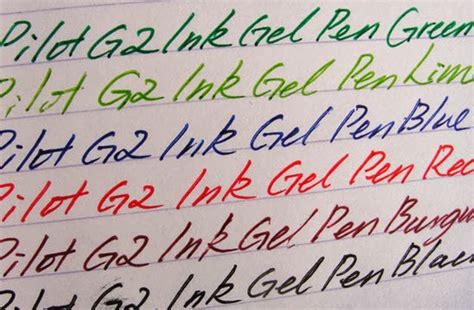 Pilot G2 Ink Gel Pen Green
Pilot G2 Ink Gel Pen Lim
Pilot G2 Ink Gel Pen Blue
Pilot G2 Ink Gel Pen Re
Pilot G2 Ink Gel Pen Burgu
Pilot G2 Ink Gel Pen Blac